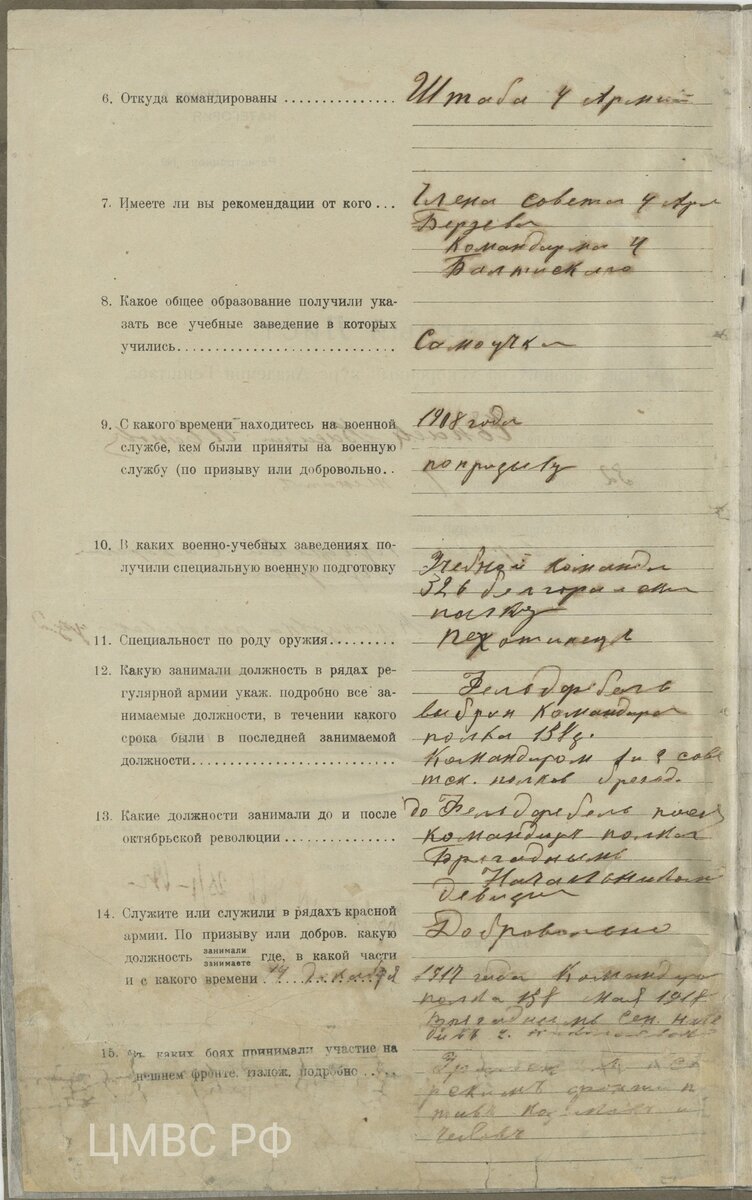 6. Откуда командированы ............... Штаба 4 Армии
7. Имеете ли вы рекомендации от кого ... Члена совета 4 Арм
Берзева
Командарма 4
Балтискаго
8. Какое общее образование получили ука-
зать все учебные заведение в которых
учились............................. Самоучка
9. С какого времени находитесь на военной 1908 года
службе, кем были приняты на военную
службу (по призыву или добровольно.. по призыву
10. В каких военно-учебных заведениях по-
получили специальную военную подготовку Учебной команде
полку
11. Специальност по роду оружия......... Пехотинець
12. Какую занимали должность в рядах ре-
гулярной армии укаж. подробно все за- Фельдфебель
нимаемые должности, в течении какого выбран Командиром
срока были в последней занимаемой полка 138
должности......................... Командиром 1 и 2 сове
тск. полков
13. Какие должности занимали до и после до Фельдфебель посл
октябрьской революции ............... Командир полка
Бригаднымъ
Начальником
дивизии
14. Служите или служили в рядахъ красной
армии. По призыву или добров. какую Добровольно
должность занимали занимаете где, в какой части
и с какого времени 14 Декабря 1917 года Командир
полка 138 мая 1918
Бригаднымъ сен.
15. каких боях принимали участие на
нешнем фронте, излож. подробно .....
ЦМВС РФ